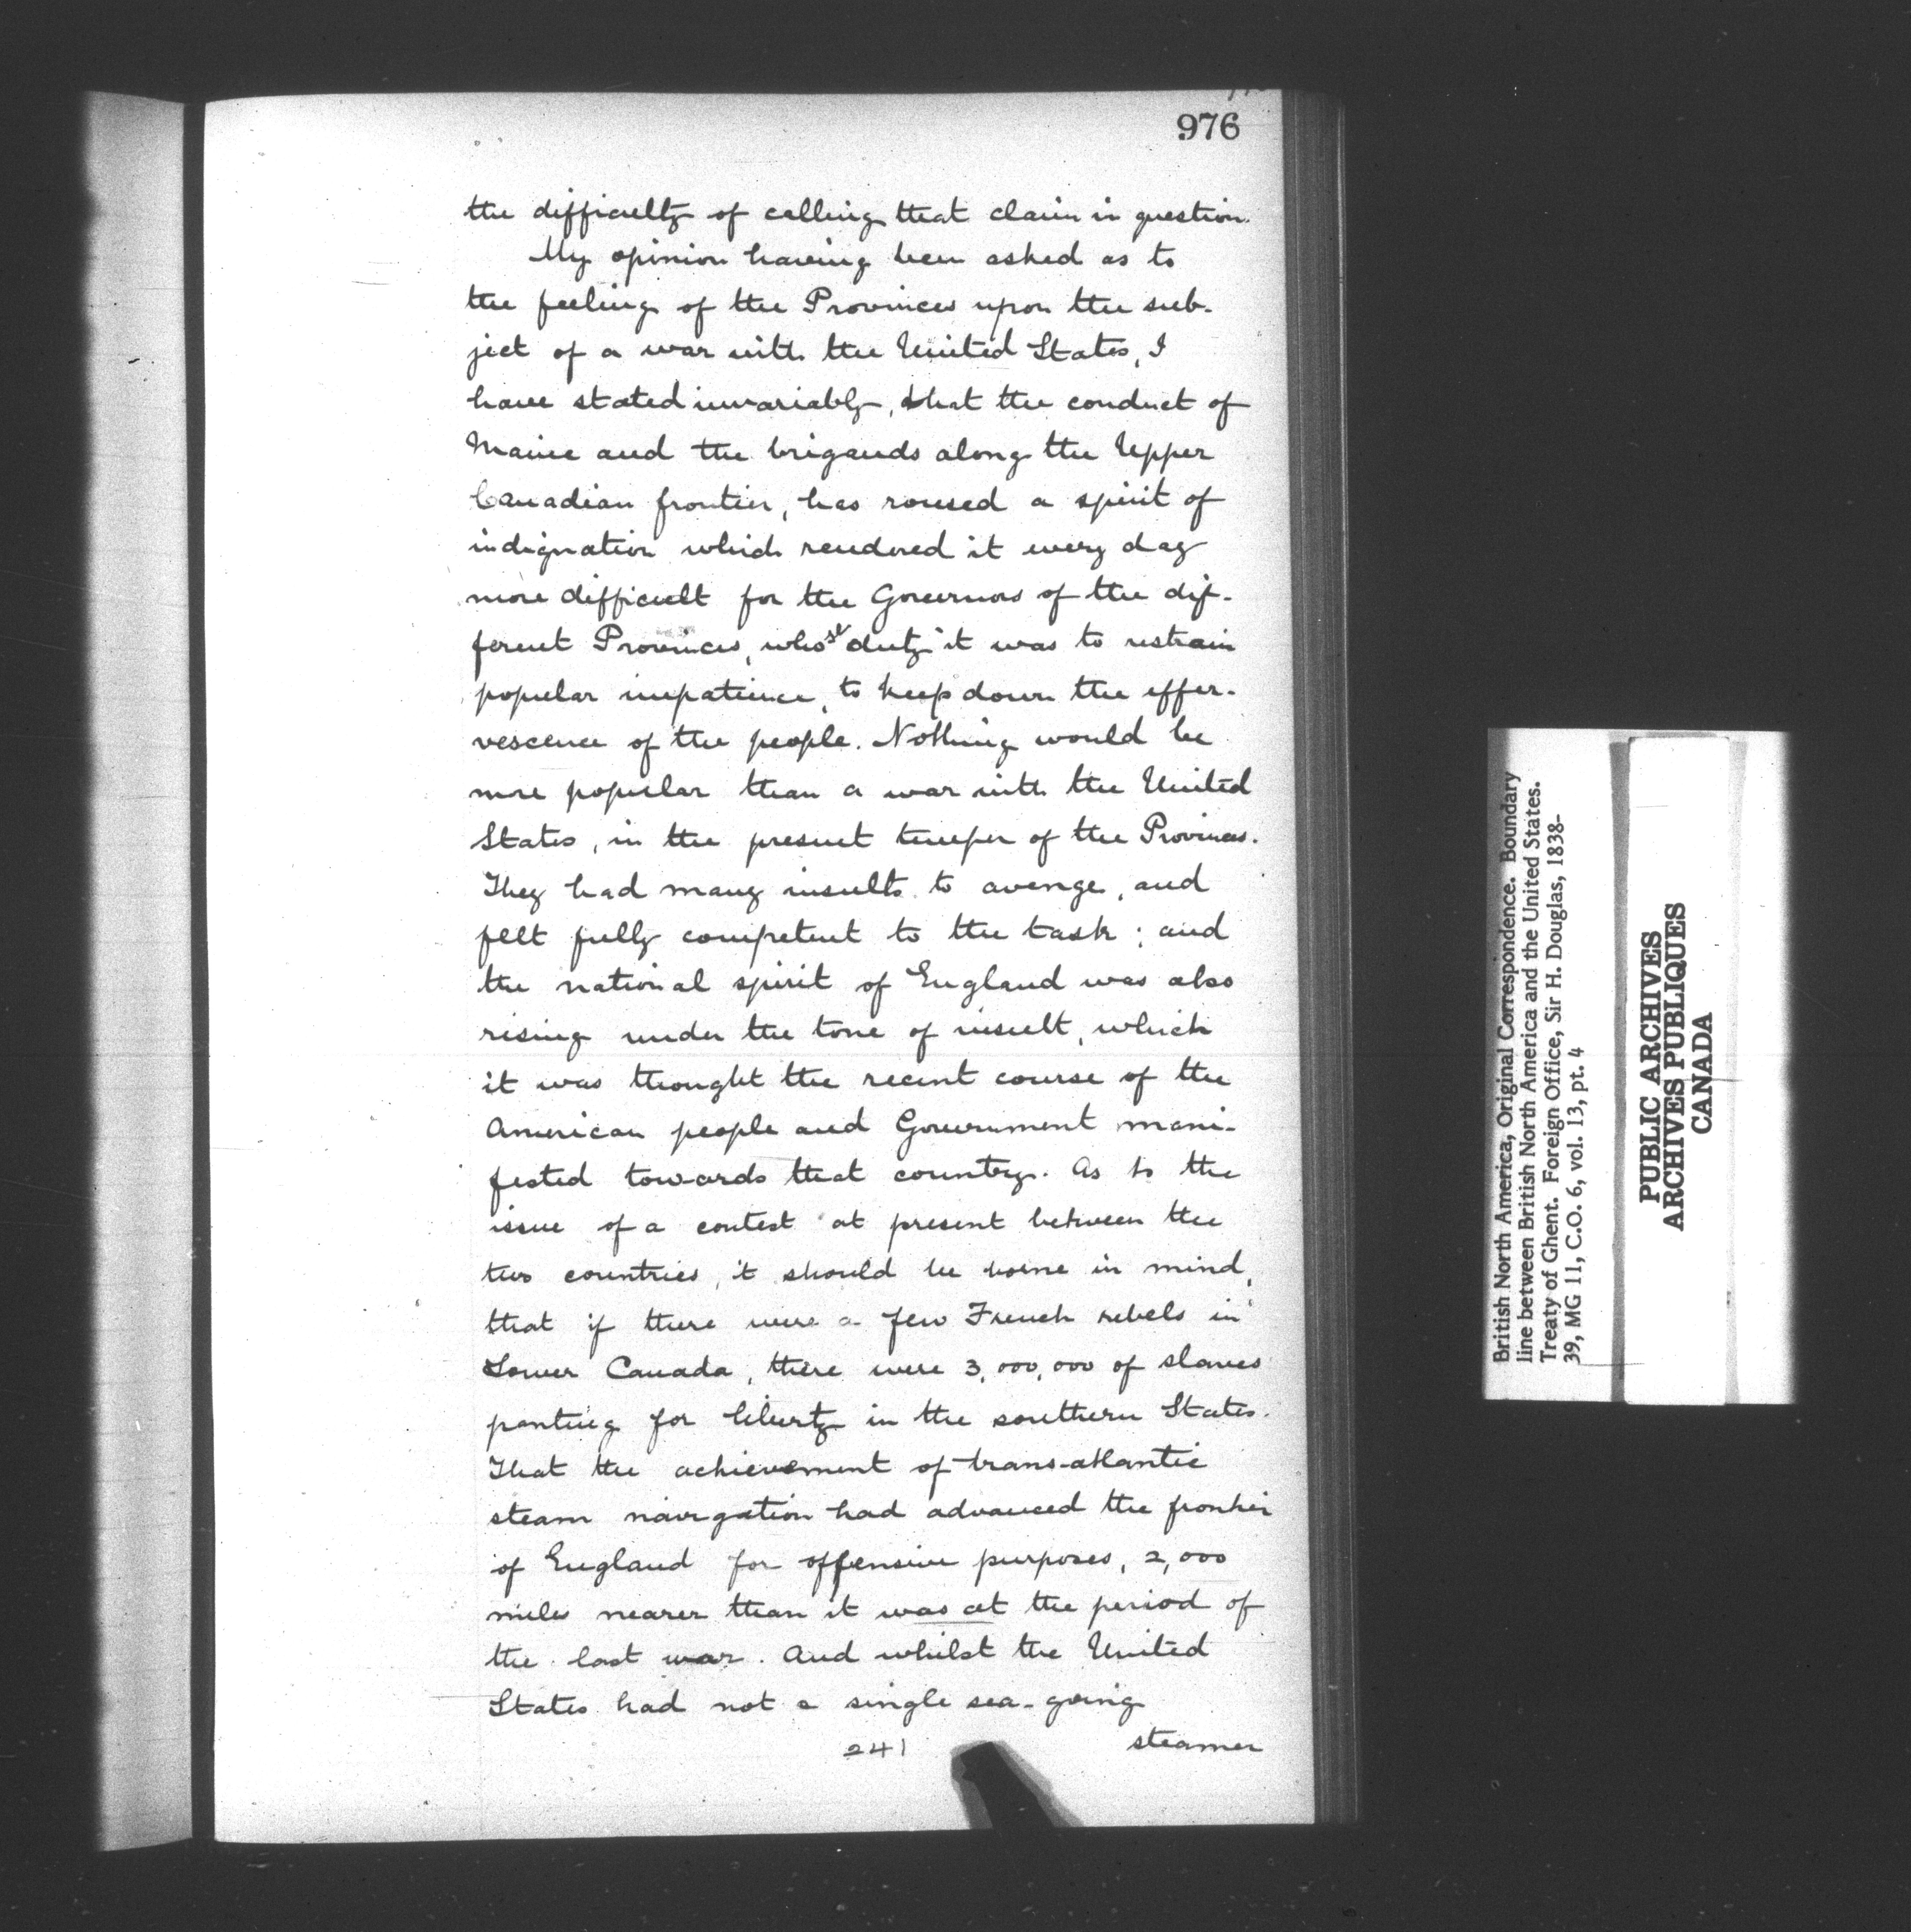 976
the difficulty of calling that claim in question.
My opinion having been asked as to
the feeling of the Provinces upon the sub-
ject of a war with the United States, I
have stated invariably, that the conduct of
Maine and the brigands along the Upper
Canadian frontier, has roused a spirit of
indignation which rendered it every day
more difficult for the Governors of the dif-
ferent Provinces, whose duty it was to restrain
popular impatience, to keep down the effer-
vescence of the people. Nothing would be
more popular than a war with the United
States, in the present temper of the Provinces.
They had many insults to avenge, and
felt fully competent to the task; and
the national spirit of England was also
rising under the tone of insult, which
it was thought the recent course of the
American people and Government mani-
fested towards that country. As to the
issue of a contest at present between the
two countries, it should be borne in mind,
that if there were a few French rebels in
Lower Canada, there were 3,000,000 of slaves
panting for liberty in the southern States.
That the achievement of trans-atlantic
steam navigation had advanced the frontier
of England for offensive purposes, 2,000
miles nearer than it was at the period of
the last war. And whilst the United
States had not a single sea-going
241 steamer
British North America, Original Correspondence. Boundary
line between British North America and the United States.
Treaty of Ghent. Foreign Office, Sir H. Douglas, 1838-
39, MG 11, C.O. 6, vol. 13, pt. 4
PUBLIC ARCHIVES
ARCHIVES PUBLIQUES
CANADA